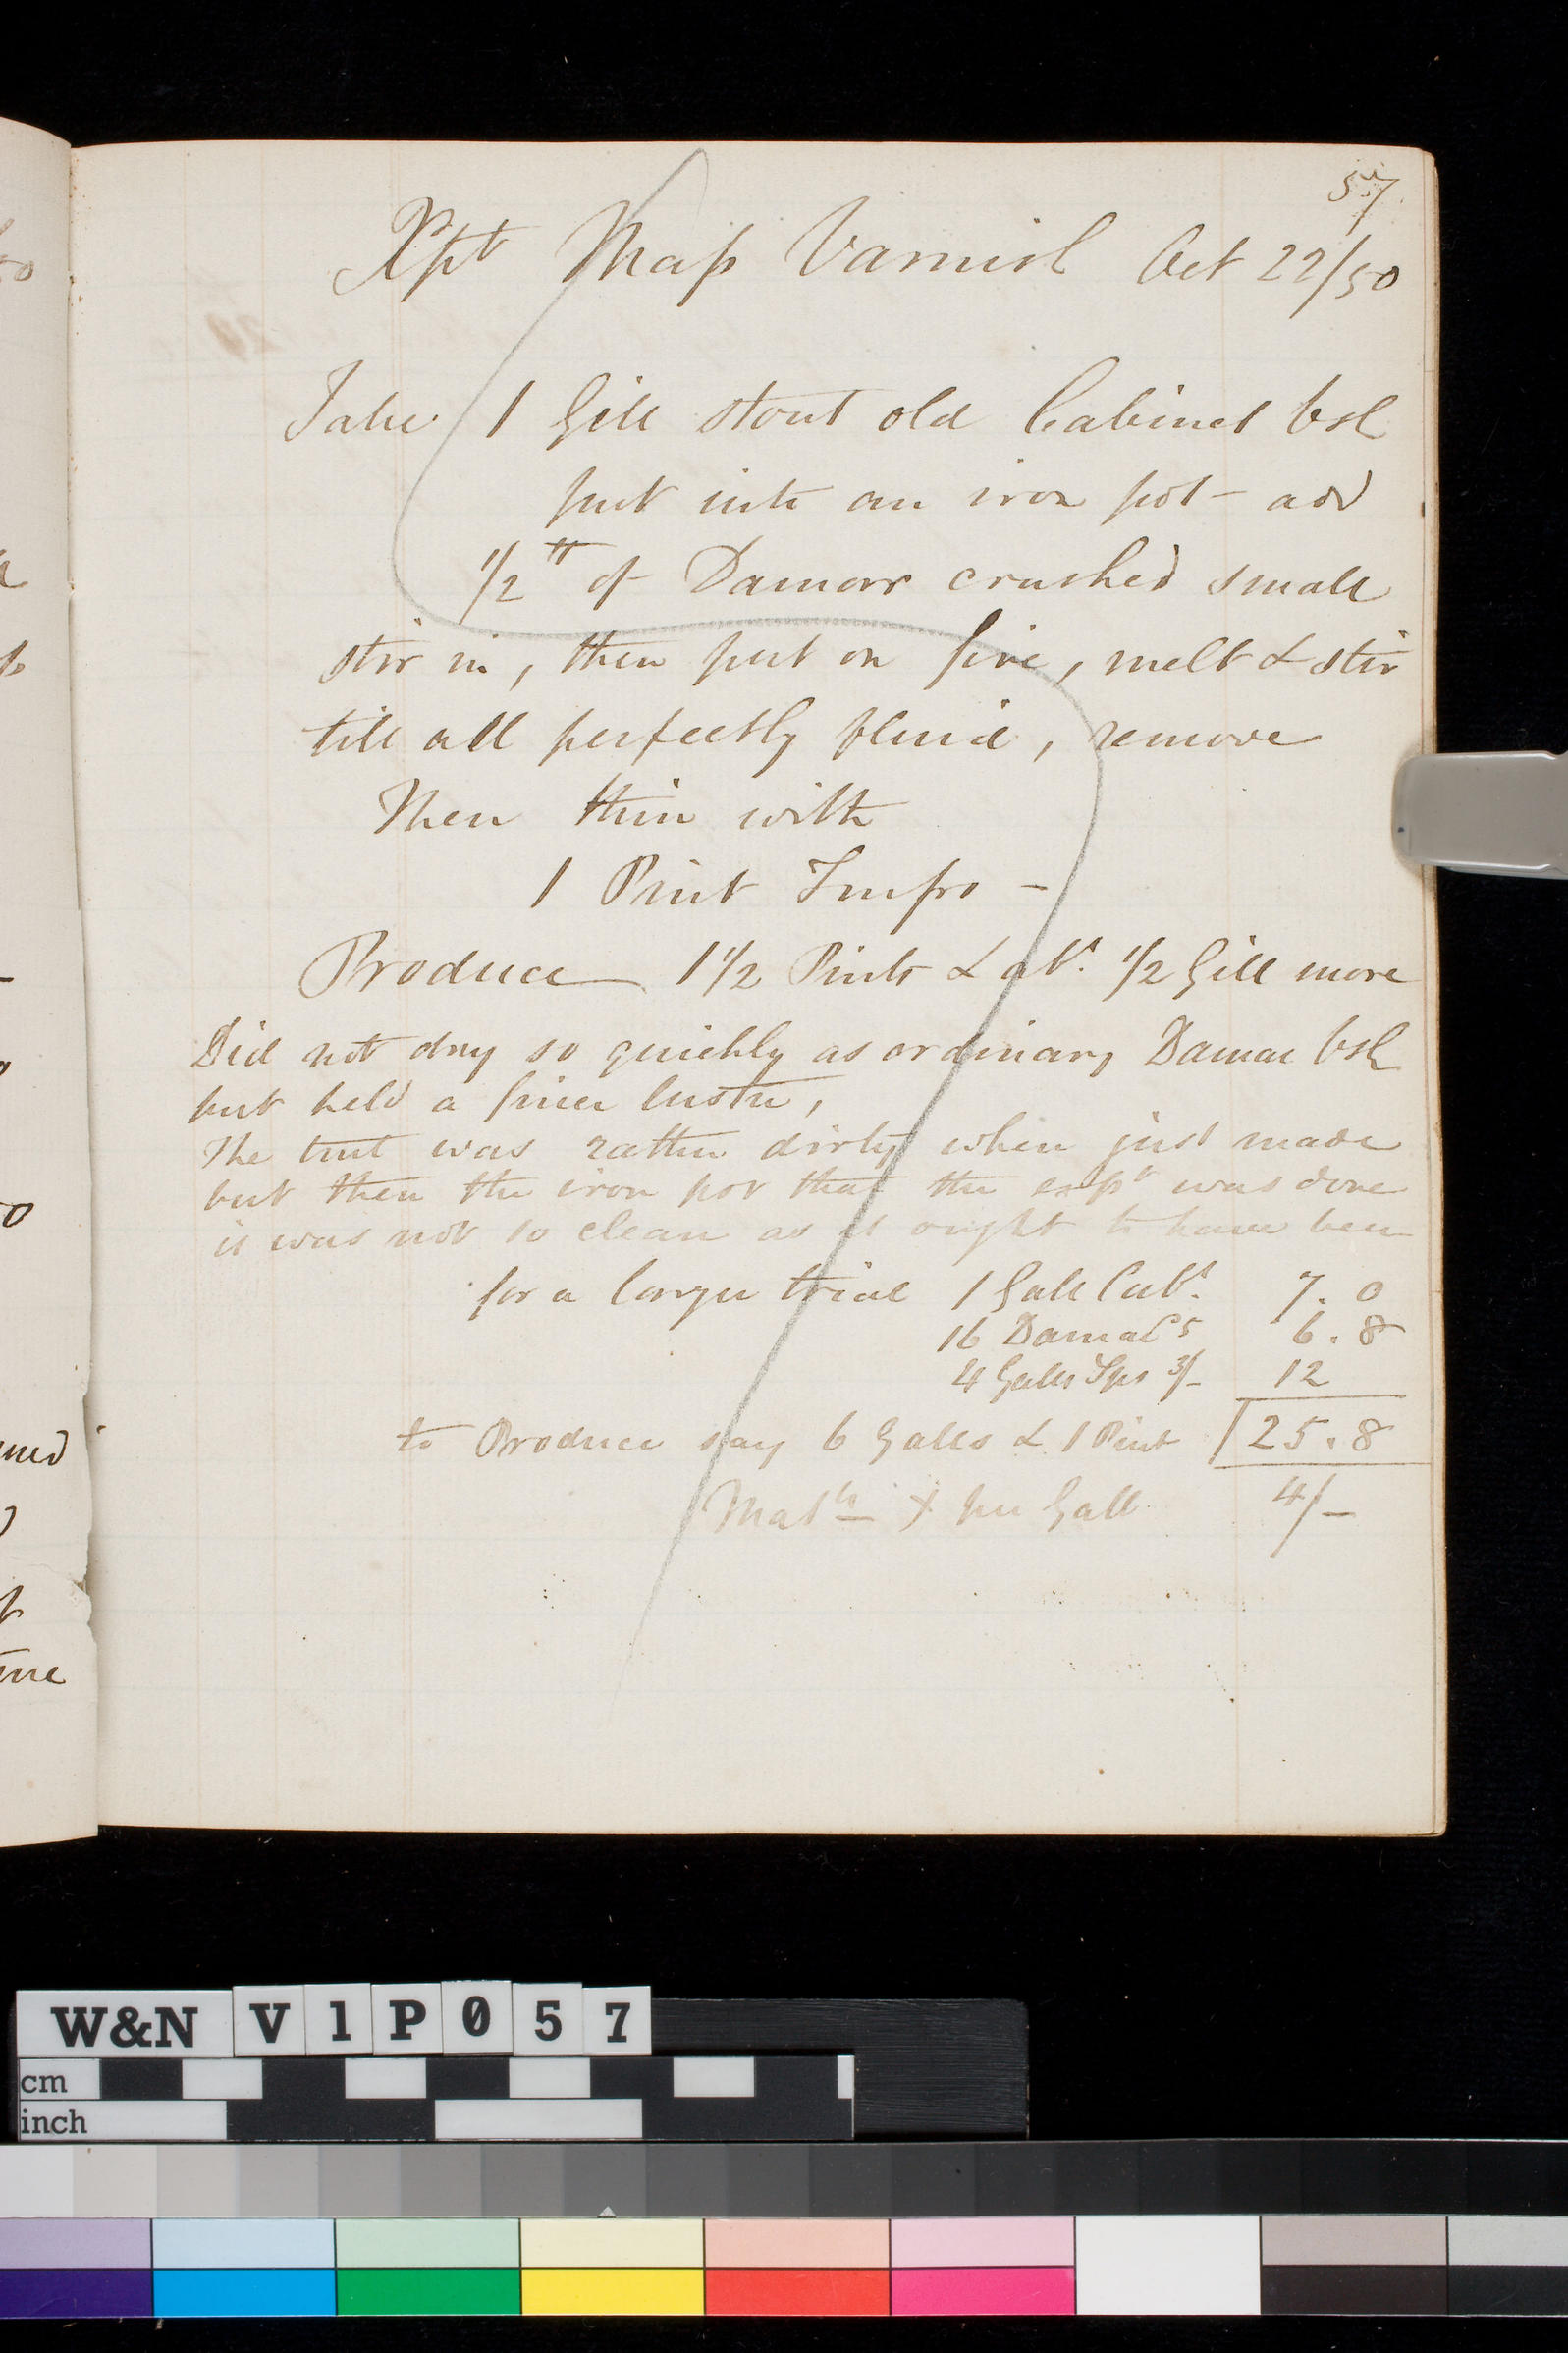 57
Xpt Map Varnish Oct 22/50
Take 1 Gill stout old Cabinet Vsh
put into an iron pot - add
1/2 lb of Damarr crushed small
stir in, then put on fire, melt & stir
till all perfectly fluid, remove
Then thin with
1 Pint Turps -
Produce 1 1/2 Pints & abt. 1/2 Gill more
Did not dry so quickly as ordinary Damar Vsh
but held a finer lustre,
The tint was rather dirty when just made
but then the iron pot that the expt was done
in was not so clean as it ought to have been
for a larger trial 1 Gall Cabt. 7. 0
16 Damar 5 6. 8
4 Galls Tps 3/- 12
to Produce say 6 Galls & 1 Pint 25. 8
Matls per Gall 4/-
W&N V1P057
cm
inch